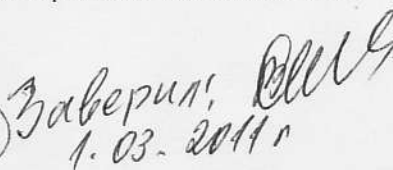 Заверил:
1.03.2011г